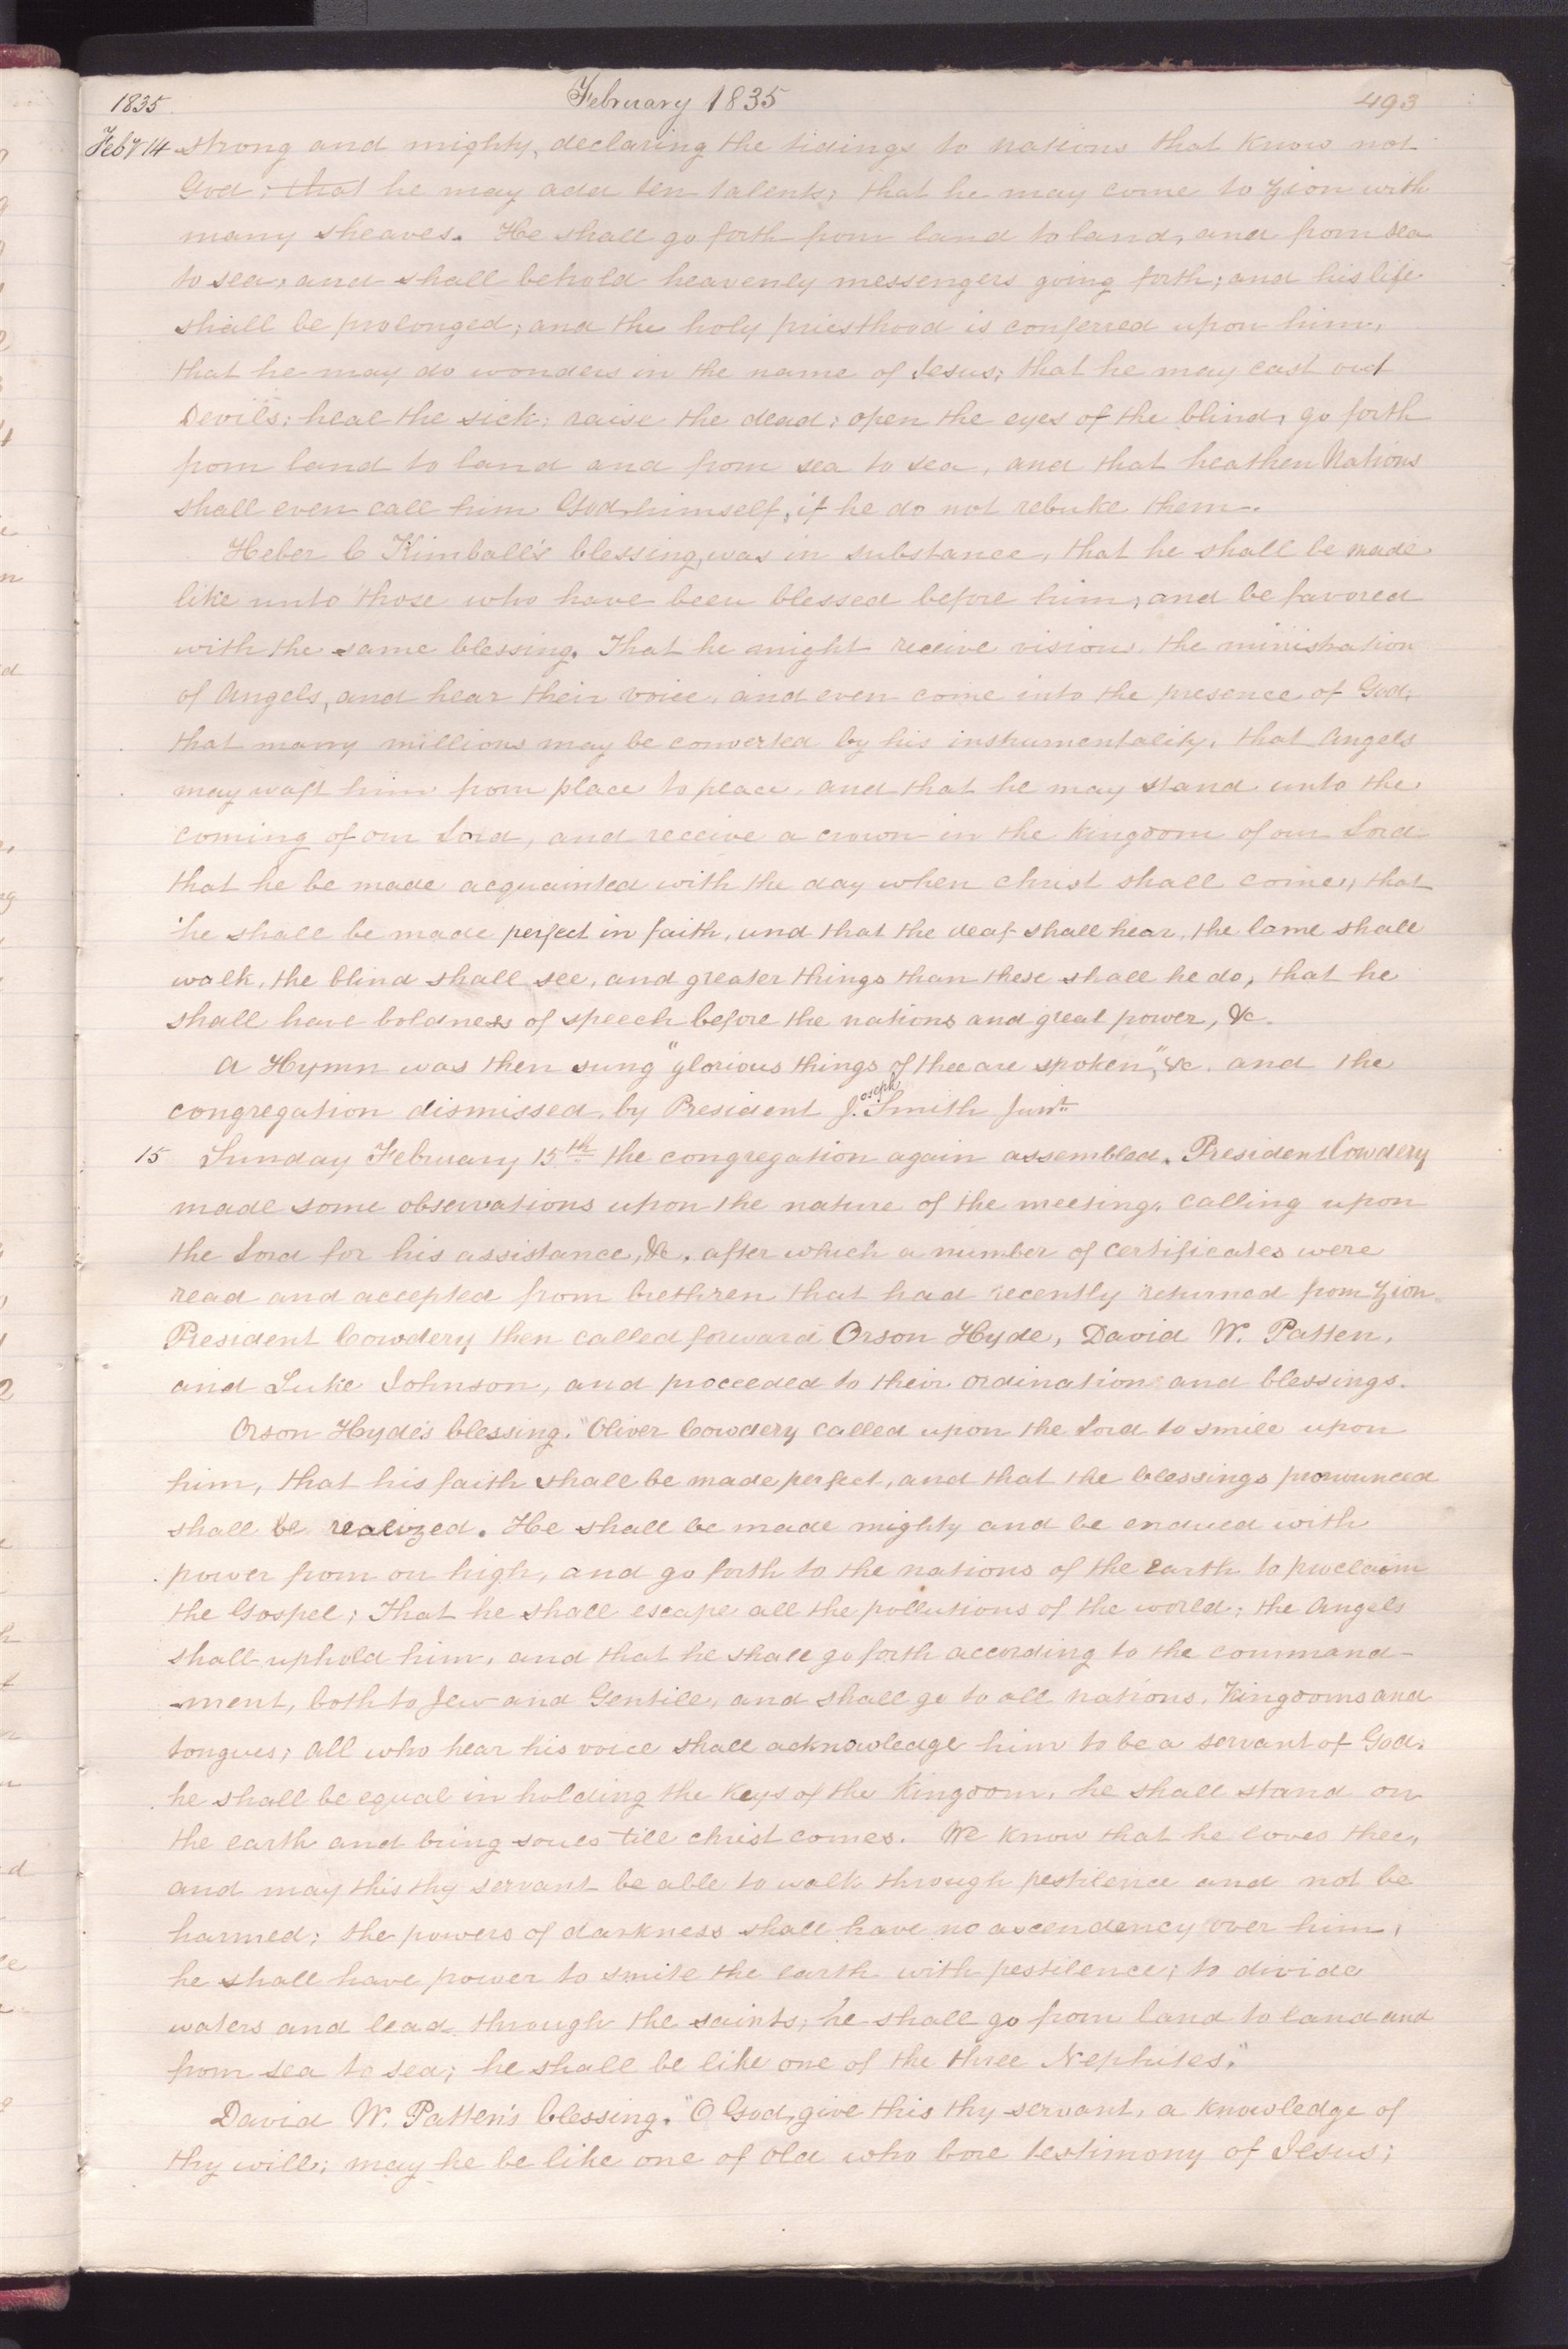 1835. February 1835 493
Feby 14 strong and mighty, declaring the tidings to nations that know not
God; that he may add ten talents; that he may come to Zion with
many sheaves. He shall go forth from land to land, and from sea
to sea, and shall behold heavenly messengers going forth; and his life
shall be prolonged; and the holy priesthood is conferred upon him,
that he may do wonders in the name of Jesus; that he may cast out
Devils; heal the sick; raise the dead; open the eyes of the blind, go forth
from land to land and from sea to sea, and that heathen Nations
shall even call him God himself, if he do not rebuke them.
Heber C Kimball's blessing, was in substance, that he shall be made
like unto those who have been blessed before him, and be favored
with the same blessing. That he might receive visions, the ministration
of Angels, and hear their voice, and even come into the presence of God;
that many millions may be converted by his instrumentality, that Angels
may waft him from place to place, and that he may stand unto the
coming of our Lord, and receive a crown in the kingdom of our Lord
that he be made acquainted with the day when christ shall come; that
he shall be made perfect in faith, and that the deaf shall hear, the lame shall
walk, the blind shall see, and greater things than these shall he do; that he
shall have boldness of speech before the nations and great power, &c.
A Hymn was then sung "glorious things of thee are spoken," &c. and the
congregation dismissed, by President J.oseph Smith Junr.
15 Sunday February 15th the congregation again assembled. President Cowdery
made some observations upon the nature of the meeting, calling upon
the Lord for his assistance, &c. after which a number of certificates were
read and accepted from brethren that had recently returned from Zion.
President Cowdery then called forward Orson Hyde, David W. Patten,
and Luke Johnson, and proceeded to their ordination and blessings.
Orson Hyde's blessing. "Oliver Cowdery called upon the Lord to smile upon
him, that his faith shall be made perfect, and that the blessings pronounced
shall be realized. He shall be made mighty and be endued with
power from on high, and go forth to the nations of the Earth to proclaim
the Gospel; That he shall escape all the pollutions of the world; the Angels
shall uphold him, and that he shall go forth according to the command-
-ment, both to Jew and Gentile, and shall go to all nations, Kingdoms and
tongues; All who hear his voice shall acknowledge him to be a servant of God;
he shall be equal in holding the Keys of the Kingdom, he shall stand on
the earth and bring souls till christ comes. We know that he loves thee,
and may this thy servant be able to walk through pestilence and not be
harmed; the powers of darkness shall have no ascendency over him,
he shall have power to smite the earth with pestilence; to divide
waters and lead through the saints; he shall go from land to land and
from sea to sea; he shall be like one of the three Nephites."
David W. Patten's blessing. "O God, give this thy servant, a knowledge of
thy will; may he be like one of old who bore testimony of Jesus;